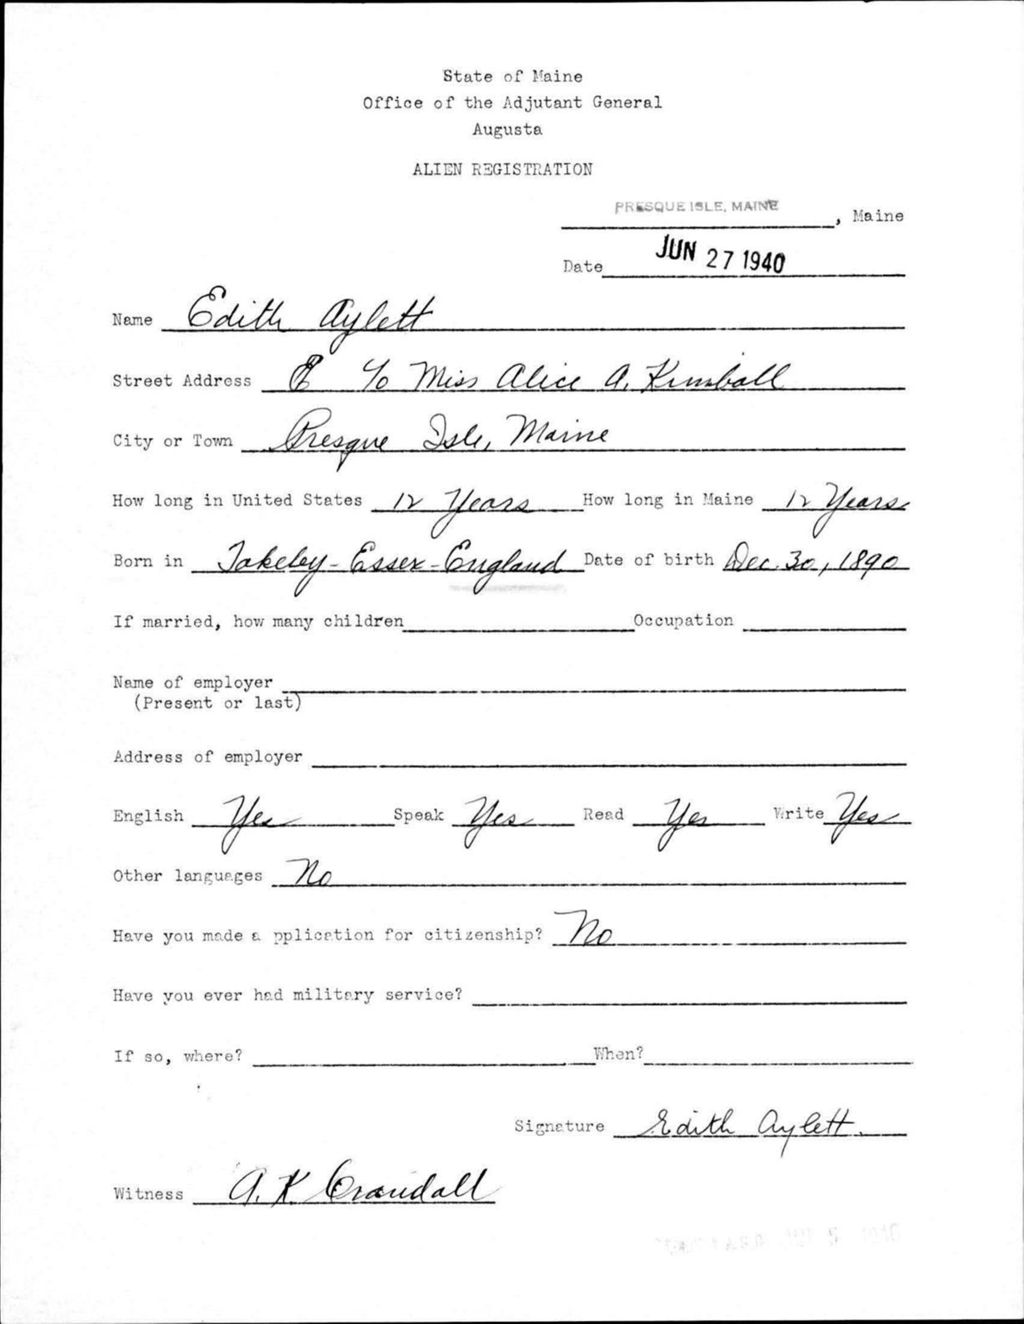 State of Maine
Office of the Adjutant General
Augusta
ALIEN REGISTRATION
PRESQUE ISLE, MAINE, Maine
Date JUN 27 1940
Name Edith Aylett
Street Address % Miss Alice A. Kimball
City or Town Presque Isle, Maine
How long in United States 12 Years How long in Maine 12 Years
Born in Takeley - Essex - England Date of birth Dec. 30, 1890
If married, how many children Occupation
Name of employer
(Present or last)
Address of employer
English Yes Speak Yes Read Yes Write Yes
Other languages No
Have you made a pplication for citizenship? No
Have you ever had military service?
If so, where? When?
Signature Edith Aylett.
Witness A. K Crandall